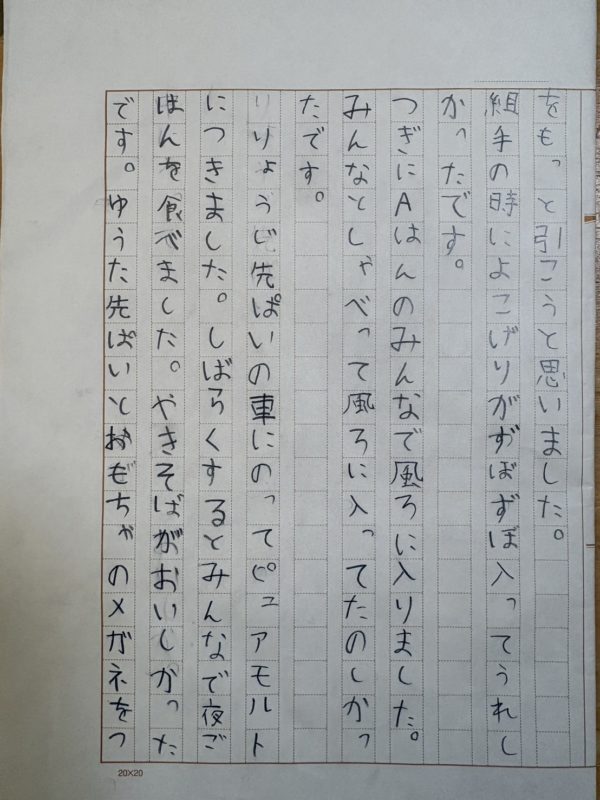 をもっと引こうと思いました。
組手の時によこげりがずばずぼ入ってうれし
かったです。
つぎにAはんのみんなで風ろに入りました。
みんなとしゃべって風ろに入ってたのしかっ
たです。
りょうじ先ぱいの車にのってピュアモルト
につきました。しばらくするとみんなで夜ご
はんを食べました。やきそばがおいしかった
です。ゆうた先ぱいとおもちゃのメガネをつ
20×20